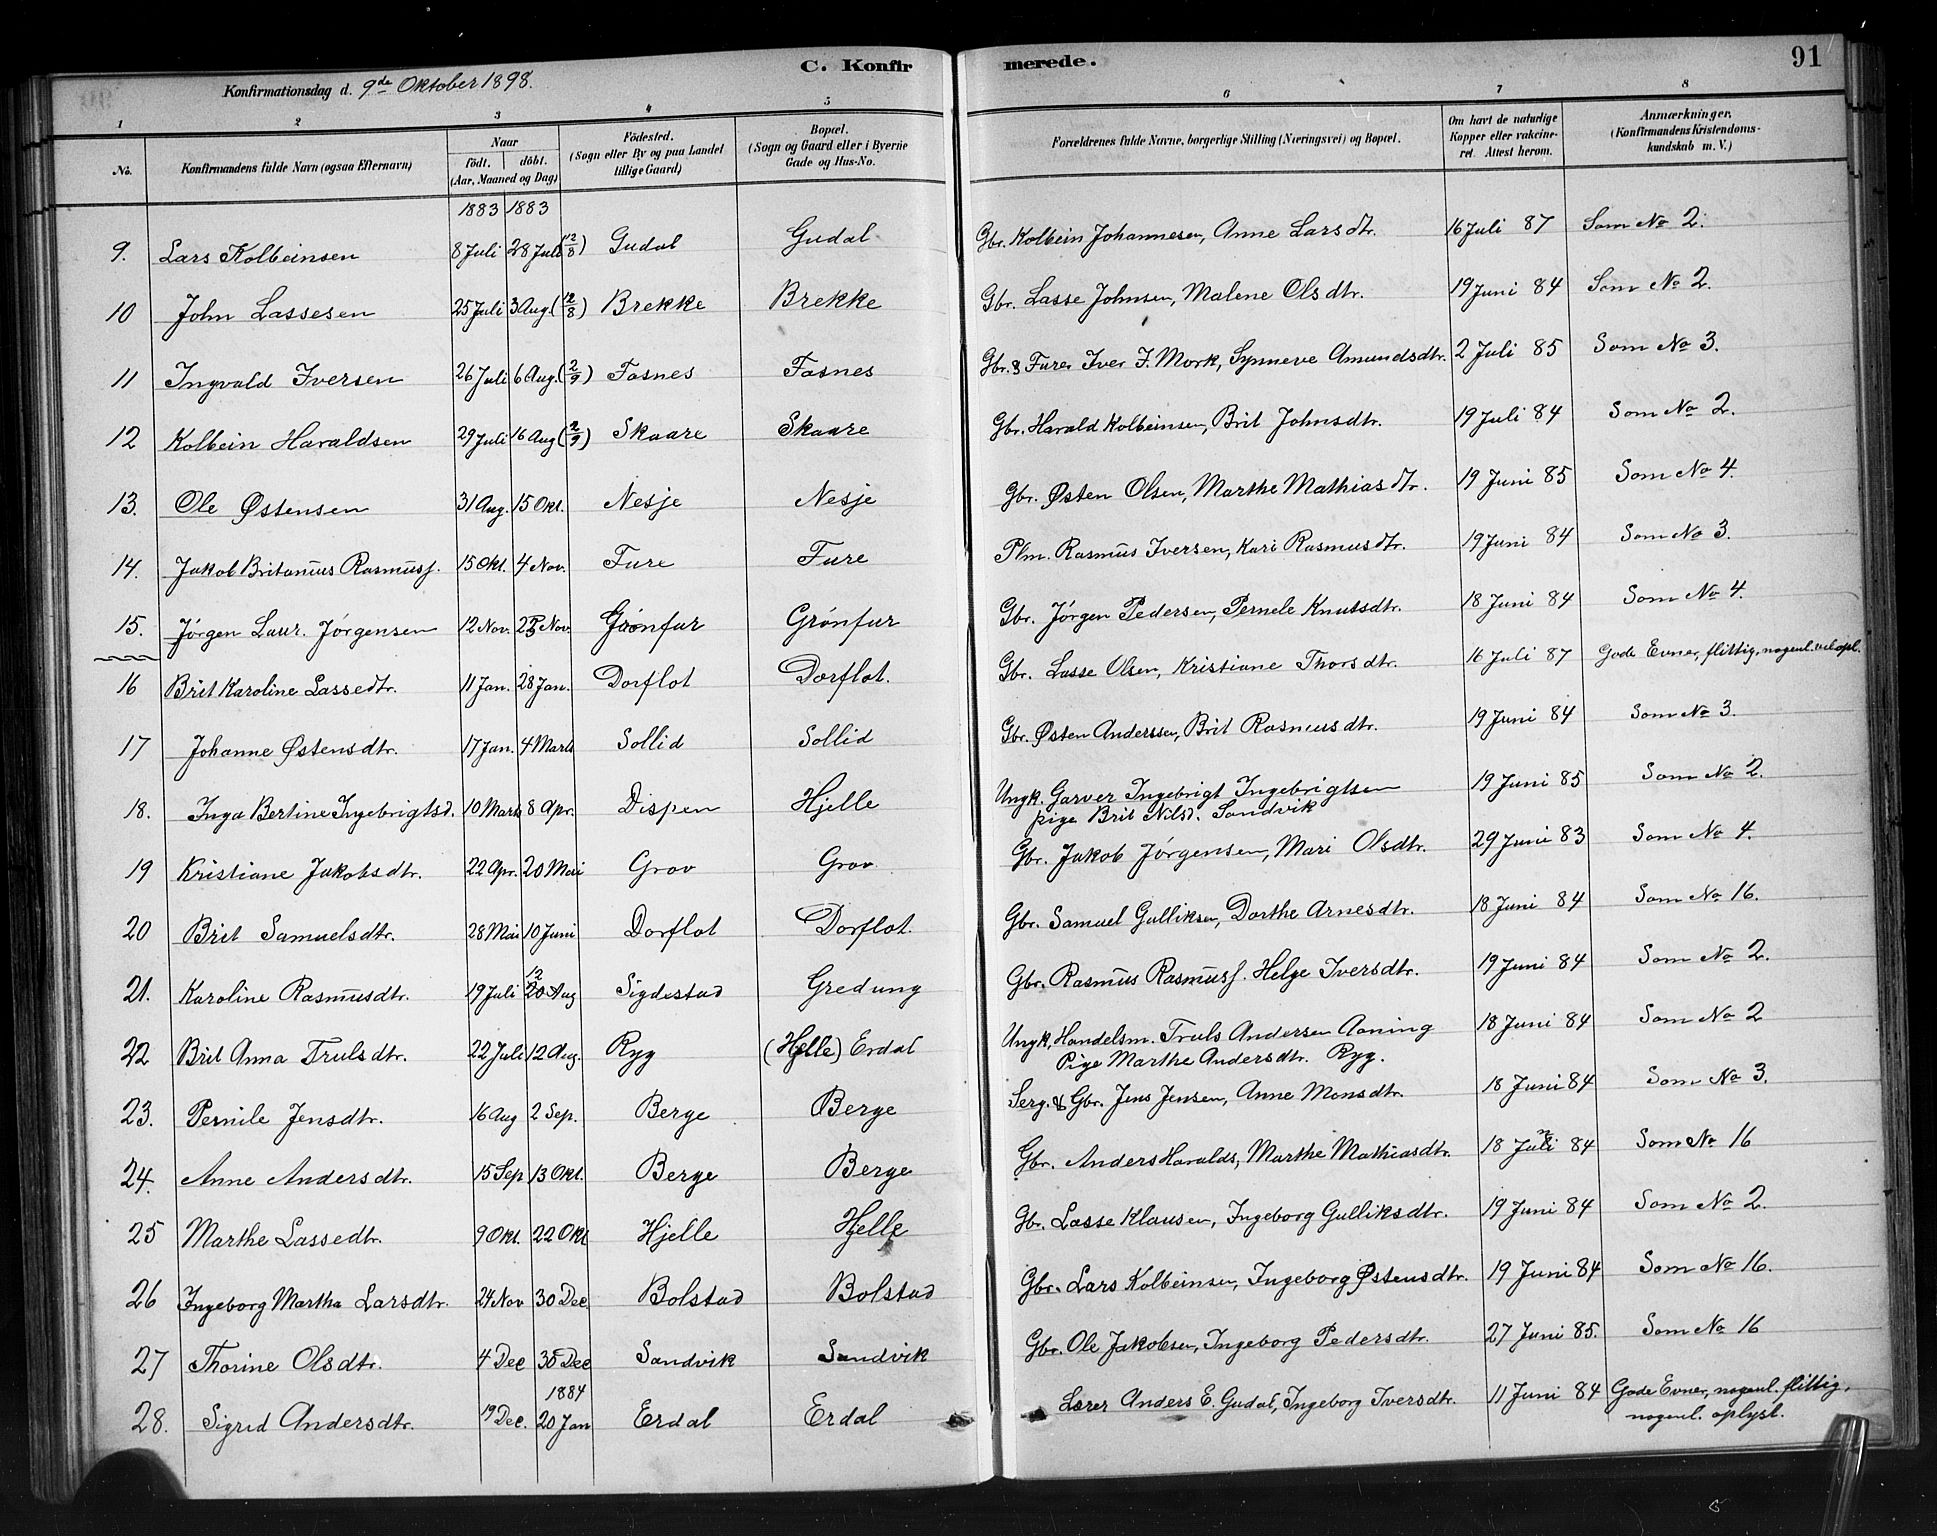 C. Konfirmerede. 91
Konfirmationsdag d. 9de Oktober 1898.
1 2 3 4 5 6 7 8
No. Konfirmandens fulde Navn (ogsaa Efternavn) Naar født. døbt. (Aar, Maaned og Dag) Fødested. (Sogn eller By og paa Landet tillige Gaard) Bopæl. (Sogn og Gaard eller i Byerne Gade og Hus-No. Forældrenes fulde Navne, borgerlige Stilling (Næringsvei) og Bopæl. Om havt de naturlige Kopper eller vakcineret. Attest herom. Anmærkninger. (Konfirmandens Kristendomskundskab m. V.)
1883 1883
9. Lars Kolbeinsen 8 Juli 28 Juli (12/8) Gudal Gudal Gbr. Kolbein Johannesen, Anne Larsdtr. 16 Juli 87 Som No 2.
10 John Lassesen 25 Juli 3 Aug. (12/8) Brekke Brekke Gbr. Lasse Johnsen, Malene Olsdtr. 19 Juni 84 Som No 2.
11 Ingvald Iversen 26 Juli 6 Aug. (2/9) Fosnes Fosnes Gbr. & Furer Iver J. Mork, Synneve Amundsdtr. 2 Juli 85 Som No 3.
12 Kolbein Haraldsen 29 Juli 16 Aug (2/9) Skaare Skaare Gbr. Harald Kolbeinsen, Brit Johnsdtr. 19 Juli 84 Som No 2.
13. Ole Østensen 31 Aug. 15 Okt. Nesje Nesje Gbr. Østen Olsen, Marthe Mathiasdtr. 19 Juni 85 Som No 4.
14. Jakob Britanius Rasmusf. 15 Okt. 4 Nov. Fure Fure Plm. Rasmus Iversen, Kari Rasmusdtr. 19 Juni 84 Som No 3.
15. Jørgen Laur. Jørgensen 12 Nov. 25 Nov. Grönfur Grönfur Gbr. Jørgen Pedersen, Pernele Knutsdtr. 18 Juni 84 Som No 4.
16 Brit Karoline Lassedtr. 11 Jan. 28 Jan. Dorflot Dorflot. Gbr. Lasse Olsen, Kristiane Thorsdtr. 16 Juli 87 Gode Evner, flittig, nogenl. vel opl.
17 Johanne Østensdtr. 17 Jan. 4 Marts Sollid Sollid Gbr. Østen Anderssen, Brit Rasmusdtr. 19 Juni 84 Som No 3.
18. Inga Bertine Ingebrigtsd. 10 Marts 8 Apr. Dispen Hjelle Ungk. Garver Ingebrigt Ingebrigtsen 19 Juni 85 Som No 2.
pige Brit Nilsd. Sandvik
19 Kristiane Jakobsdtr. 22 Apr. 20 Mai Grov Grov Gbr. Jakob Jørgensen, Mari Olsdtr. 29 Juni 83 Som No 4.
20 Brit Samuelsdtr. 28 Mai 10 Juni Dorflot Dorflot. Gbr. Samuel Gulliksen, Dorthe Arnesdtr. 18 Juni 84 Som No 16.
12
21. Karoline Rasmusdtr. 19 Juli 20 Aug Sigdestad Gredung Gbr. Rasmus Rasmusf. Helge Iversdtr. 19 Juni 84 Som No 2.
22 Brit Anna Trulsdtr. 22 Juli 12 Aug. Ryg (Hjelle) Erdal Ungk, Handelsm. Truls Andersen Aaning 18 Juni 84 Som No 2
Pige Marthe Andersdtr. Ryg.
23. Pernile Jensdtr. 16 Aug 2 Sep. Berge Berge Serg. & Gbr. Jens Jensen, Anne Monsdtr. 18 Juni 84 Som No 3.
24. Anne Andersdtr. 15 Sep 13 Okt. Berge Berge Gbr. Anders Haralds, Marthe Mathiasdtr. 18 Juni 84 Som No 16
25 Marthe Lassedtr. 9 Okt. 22 Okt Hjelle Hjelle Gbr. Lasse Klausen, Ingeborg Gulliksdtr. 19 Juni 84 Som No 2.
26 Ingeborg Martha Larsdtr. 24 Nov 30 Dec. Bolstad Bolstad Gbr. Lars Kolbeinsen, Ingeborg Østensdtr. 19 Juni 84 Som No 16.
27 Thorine Olsdtr. 4 Dec 30 Dec Sandvik Sandvik Gbr. Ole Jakobsen, Ingeborg Pedersdtr. 27 Juni 85. Som No 16
1884
28. Sigrid Andersdtr. 19 Dec. 20 Jan Erdal Erdal Lærer Anders E. Gudal, Ingeborg Iversdtr. 11 Juni 84 Gode Evner, nogenl. flittig,
nogenl. oplyst.